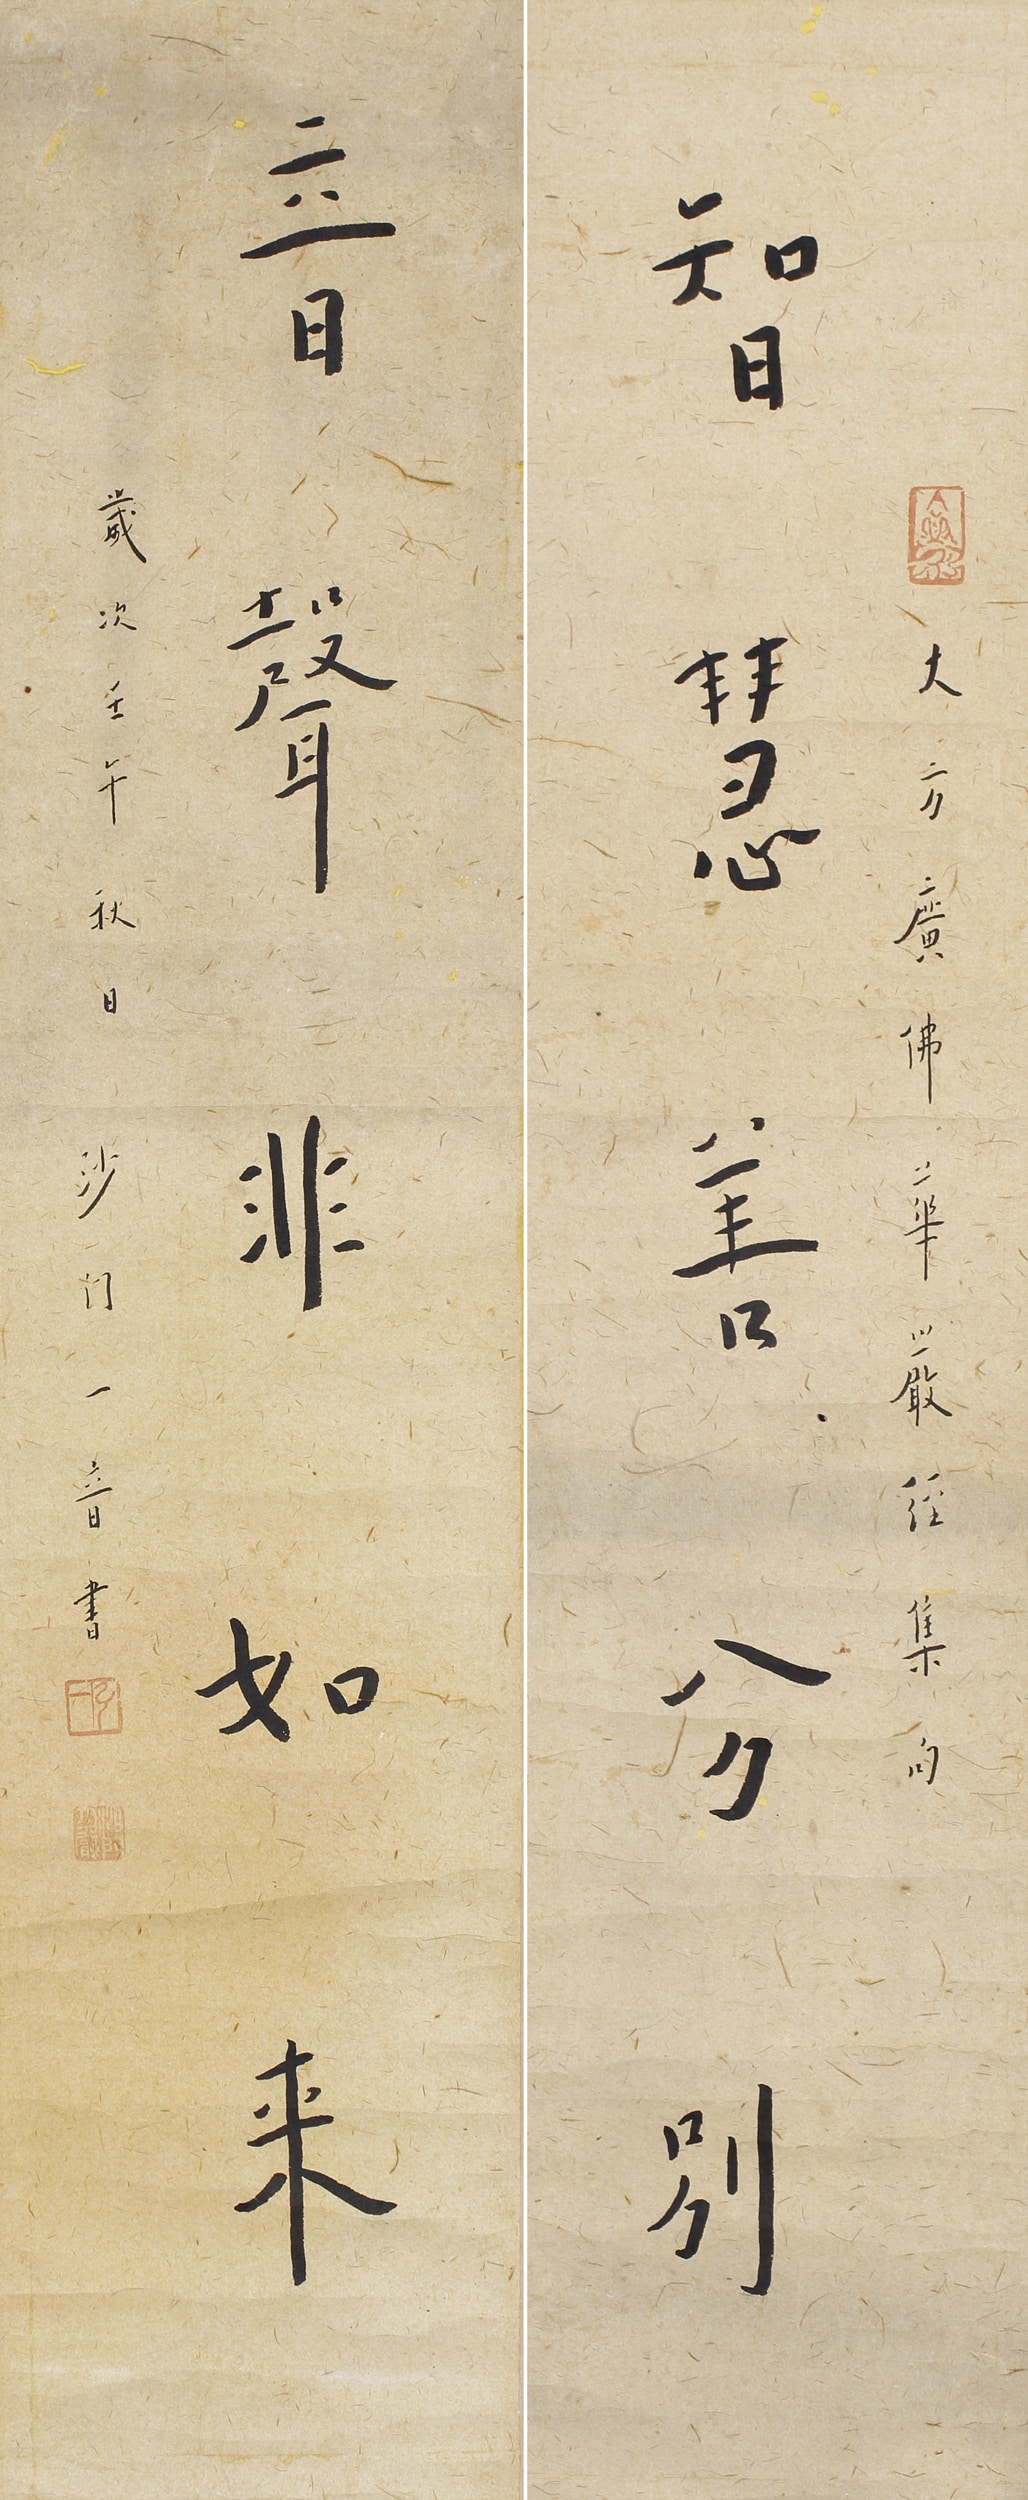 大方廣佛華嚴經集句
智慧善分別
音聲非如來
歲次壬午秋日 沙门一音書